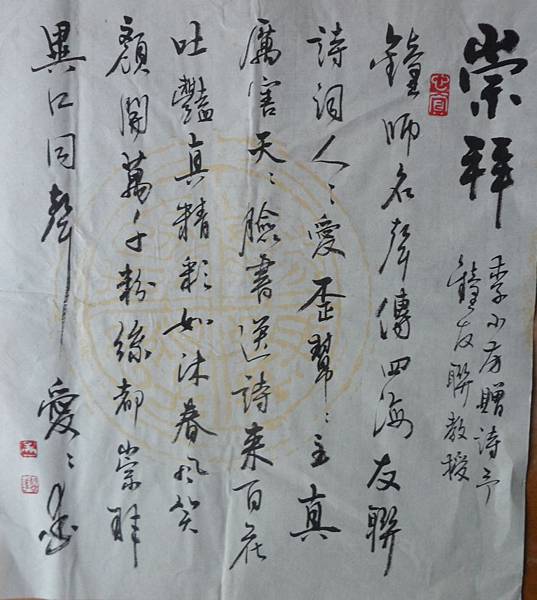 崇拜
李小贈詩予
鐘友聯教授
鐘師名聲傳四海友聯
詩詞人〻愛歪幫〻主真
厲害天〻臉書送詩来百花
吐豔真精彩如沐春風笑
顏開萬千粉絲都崇拜
異口同聲愛〻